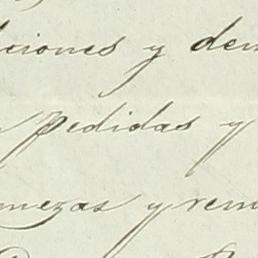 ciones y dem
pedidas y
mezas y rem